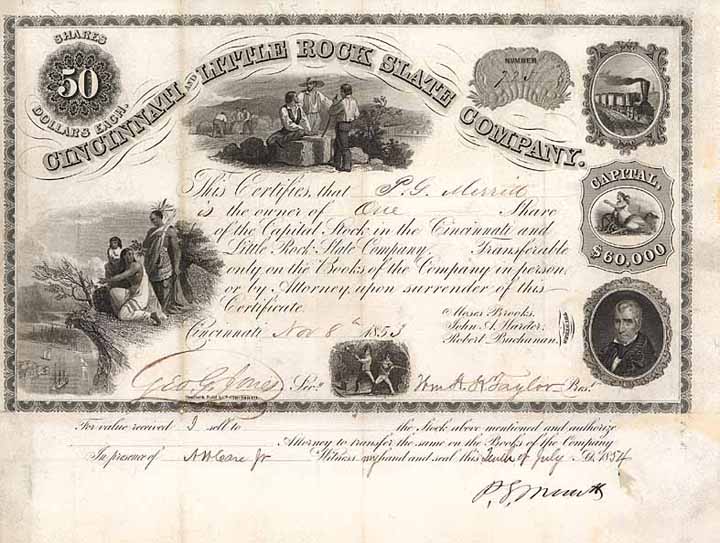 SHARES
50
DOLLARS EACH.
CINCINNATI AND LITTLE ROCK SLATE COMPANY.
NUMBER
CAPITAL,
$60,000
This Certifies, that P. G. Merrill
is the owner of One Share
of the Capital Stock in the Cincinnati and
Little Rock Slate Company. Transferable
only on the Books of the Company in person
or by Attorney, upon surrender of this
Certificate.
Cincinnati Nov 8th 1853
Moses Brooks,
John A. Warder,
Robert Buchanan,
Geo. G. Jones Sec.y
Wm H. H. Taylor Pres.t
For value received I sell to the Stock above mentioned and authorize
Attorney to transfer the same on the Books of the Company
In presence of Jr Witness my hand and seal this Tenth of July AD. 1854